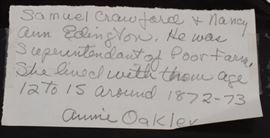 Samuel Crawford & Nancy
Ann Edington. He was
Superintendant of Poor Farm.
She lived with them age
12 to 15 around 1872-73
Annie Oakley